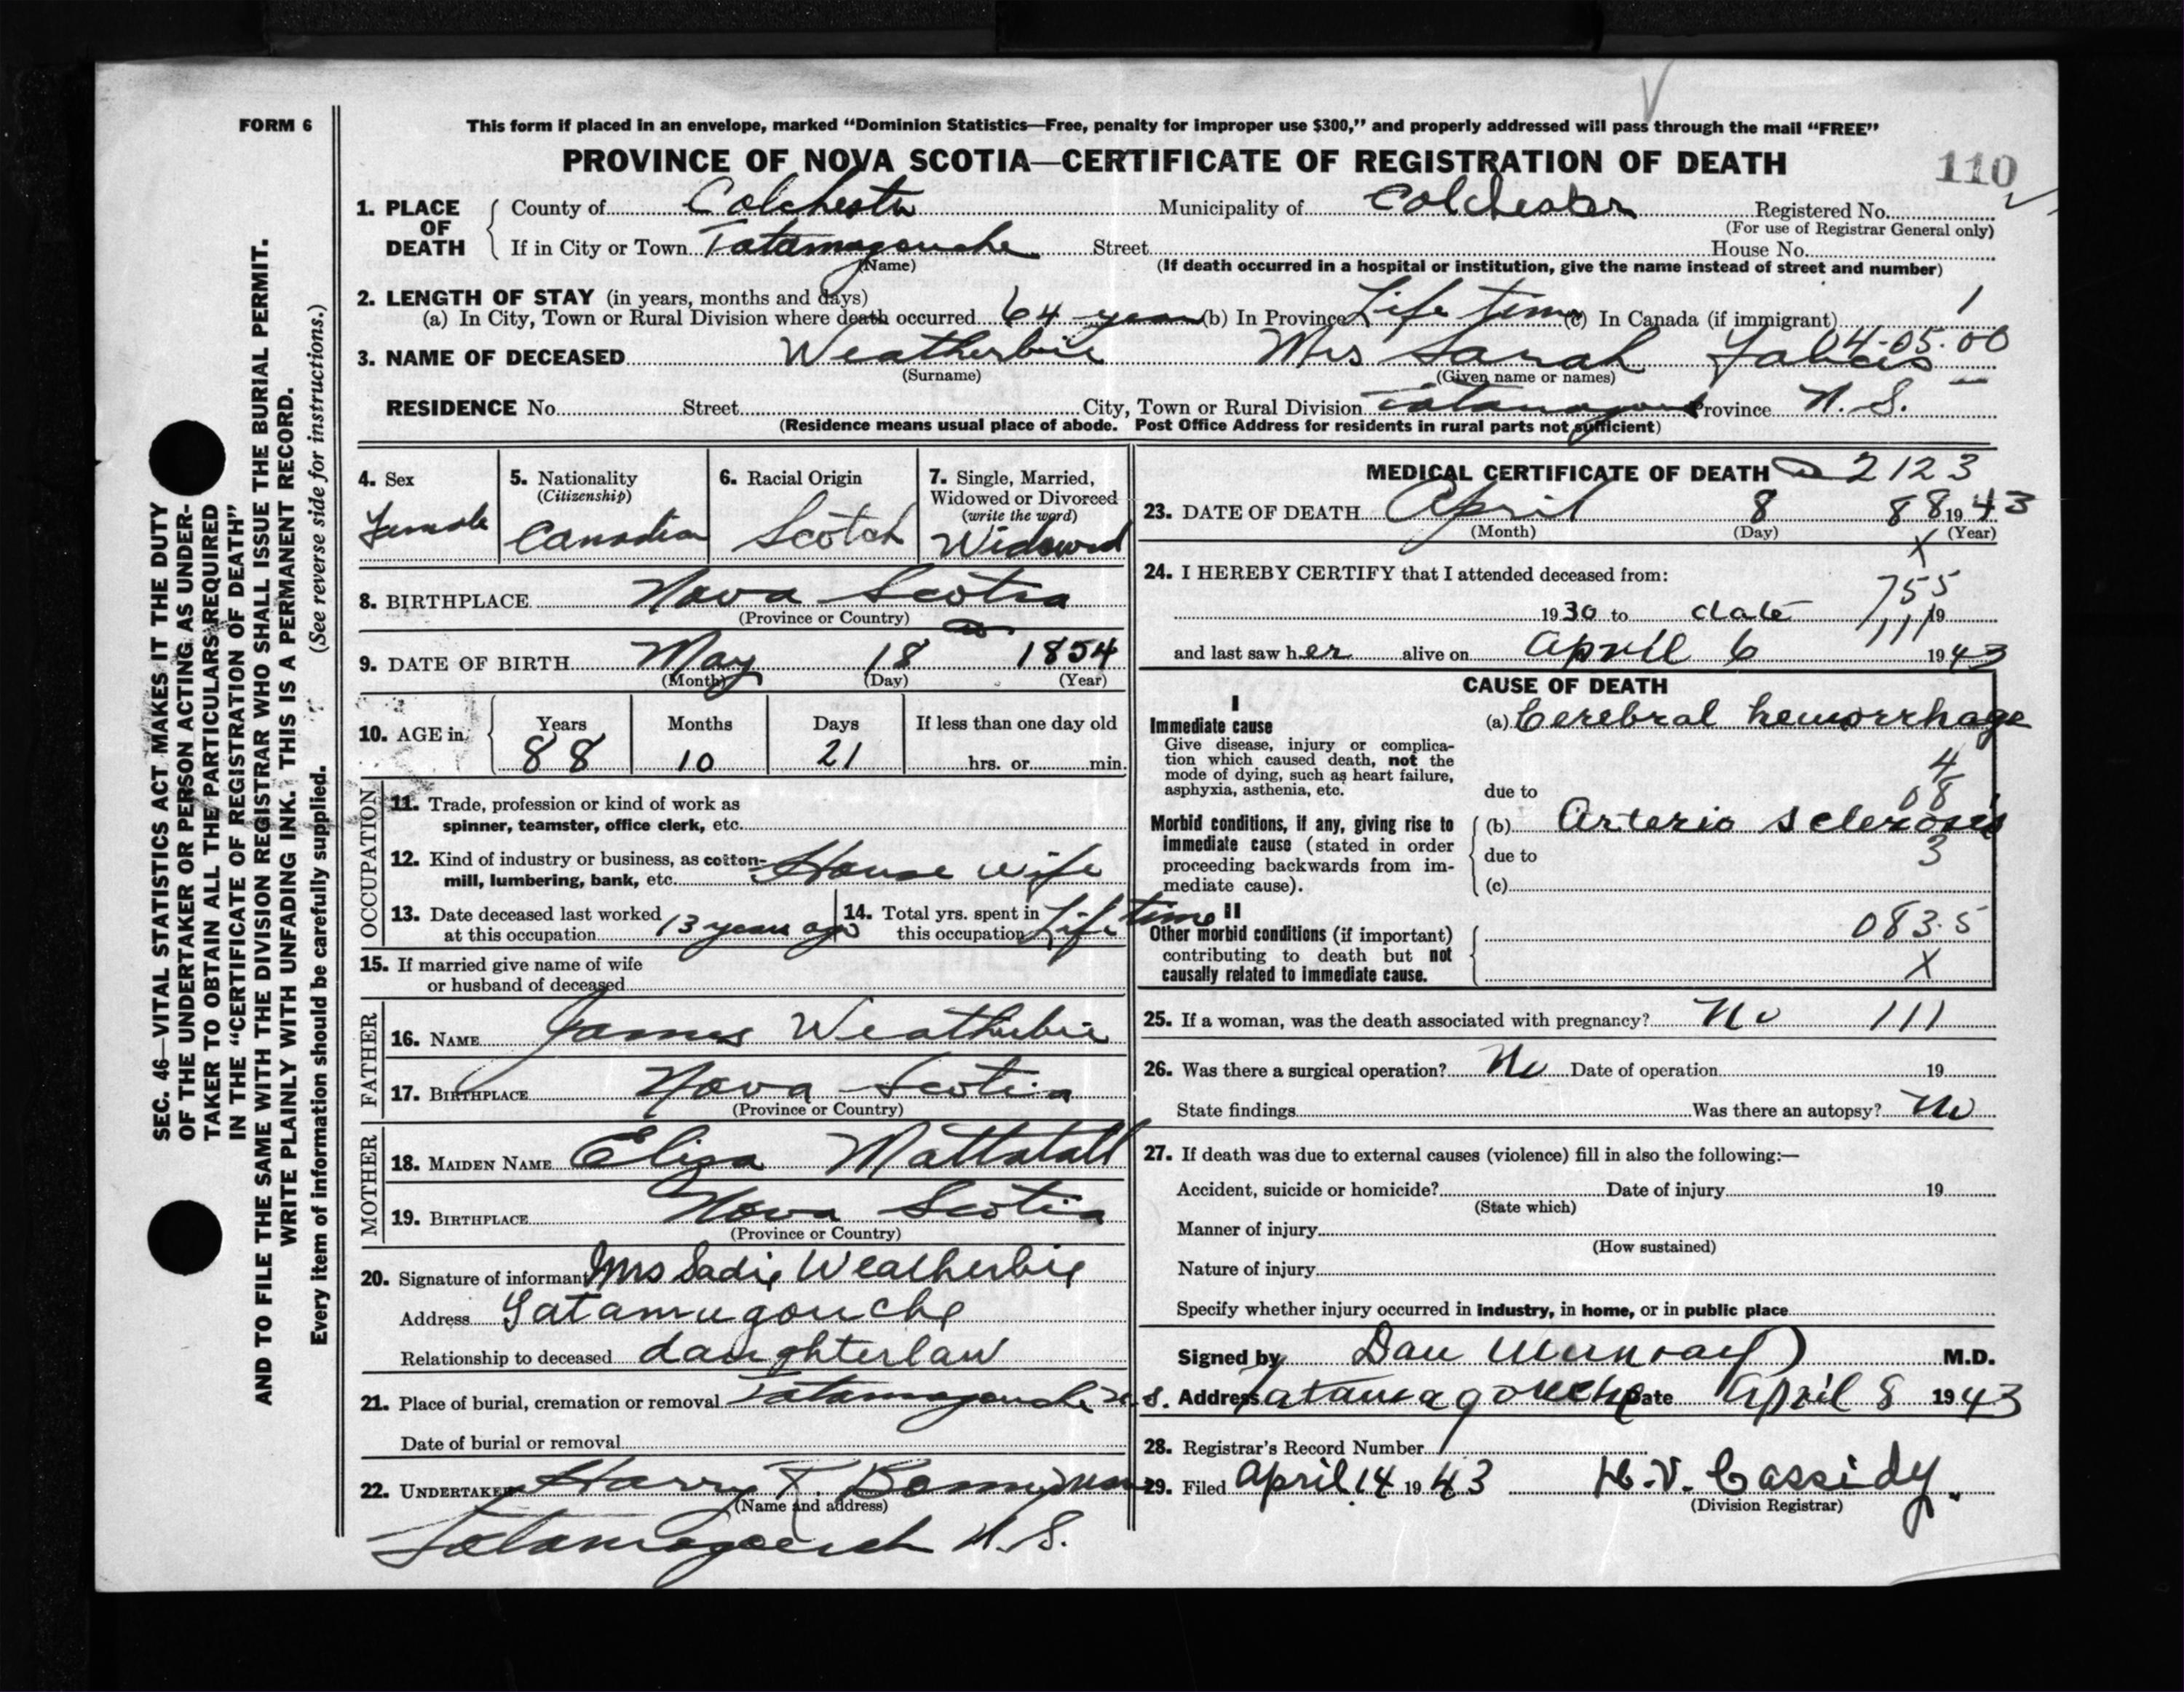 FORM 6
This form if placed in an envelope, marked “Dominion Statistics—Free, penalty for improper use $300,” and properly addressed will pass through the mail “FREE”
PROVINCE OF NOVA SCOTIA—CERTIFICATE OF REGISTRATION OF DEATH
110
1. PLACE OF DEATH County of Colchester Municipality of Colchester Registered No.
(For use of Registrar General only)
If in City or Town Tatamagouche Street House No.
(Name) (If death occurred in a hospital or institution, give the name instead of street and number)
2. LENGTH OF STAY (in years, months and days)
(a) In City, Town or Rural Division where death occurred 64 years (b) In Province Life time (c) In Canada (if immigrant) 1
04-05-00
3. NAME OF DECEASED Weatherbie Mrs Sarah
(Surname) (Given name or names)
RESIDENCE No. Street City, Town or Rural Division Tatamagouche Province N.S.
(Residence means usual place of abode. Post Office Address for residents in rural parts not sufficient)
4. Sex Female
5. Nationality (Citizenship) Canadian
6. Racial Origin Scotch
7. Single, Married, Widowed or Divorced (write the word) Widowed
8. BIRTHPLACE Nova Scotia
(Province or Country)
9. DATE OF BIRTH May 18 1854
(Month) (Day) (Year)
10. AGE in Years 88 Months 10 Days 21 If less than one day old hrs. or min.
OCCUPATION
11. Trade, profession or kind of work as
spinner, teamster, office clerk, etc.
12. Kind of industry or business, as cotton-
mill, lumbering, bank, etc. House wife
13. Date deceased last worked
at this occupation 13 years ago
14. Total yrs. spent in
this occupation Life time
15. If married give name of wife
or husband of deceased
FATHER
16. NAME James Weatherbie
17. BIRTHPLACE Nova Scotia
(Province or Country)
MOTHER
18. MAIDEN NAME Eliza Mattatall
19. BIRTHPLACE Nova Scotia
(Province or Country)
20. Signature of informant Mrs Sadie Weatherbie
Address Tatamugouche
Relationship to deceased daughterlaw
21. Place of burial, cremation or removal Tatamagouche N.S.
Date of burial or removal
22. UNDERTAKER Harry T.
(Name and address)
N.S.
MEDICAL CERTIFICATE OF DEATH 2123
23. DATE OF DEATH April 8 88 1943
(Month) (Day) (Year)
X
24. I HEREBY CERTIFY that I attended deceased from:
755
1930 to date 19
111
and last saw her alive on April 6 1943
CAUSE OF DEATH
I
Immediate cause
Give disease, injury or complica-
tion which caused death, not the
mode of dying, such as heart failure,
asphyxia, asthenia, etc.
(a) Cerebral hemorrhage
4
08
due to
Morbid conditions, if any, giving rise to
immediate cause (stated in order
proceeding backwards from im-
mediate cause).
(b) Arterio sclerosis
due to 3
(c)
II
Other morbid conditions (if important)
contributing to death but not
causally related to immediate cause.
083.5
X
25. If a woman, was the death associated with pregnancy? No 111
26. Was there a surgical operation? No Date of operation 19
State findings Was there an autopsy? No
27. If death was due to external causes (violence) fill in also the following:—
Accident, suicide or homicide? Date of injury 19
(State which)
Manner of injury
(How sustained)
Nature of injury
Specify whether injury occurred in industry, in home, or in public place
Signed by Dan Murray M.D.
Address Tatamagouche Date April 8 1943
28. Registrar's Record Number 1
29. Filed April 14 1943 H.V. Cassidy.
(Division Registrar)
SEC. 46—VITAL STATISTICS ACT MAKES IT THE DUTY
OF THE UNDERTAKER OR PERSON ACTING AS UNDER-
TAKER TO OBTAIN ALL THE PARTICULARS REQUIRED
IN THE “CERTIFICATE OF REGISTRATION OF DEATH”
AND TO FILE THE SAME WITH THE DIVISION REGISTRAR WHO SHALL ISSUE THE BURIAL PERMIT.
WRITE PLAINLY WITH UNFADING INK. THIS IS A PERMANENT RECORD.
Every item of information should be carefully supplied. (See reverse side for instructions.)